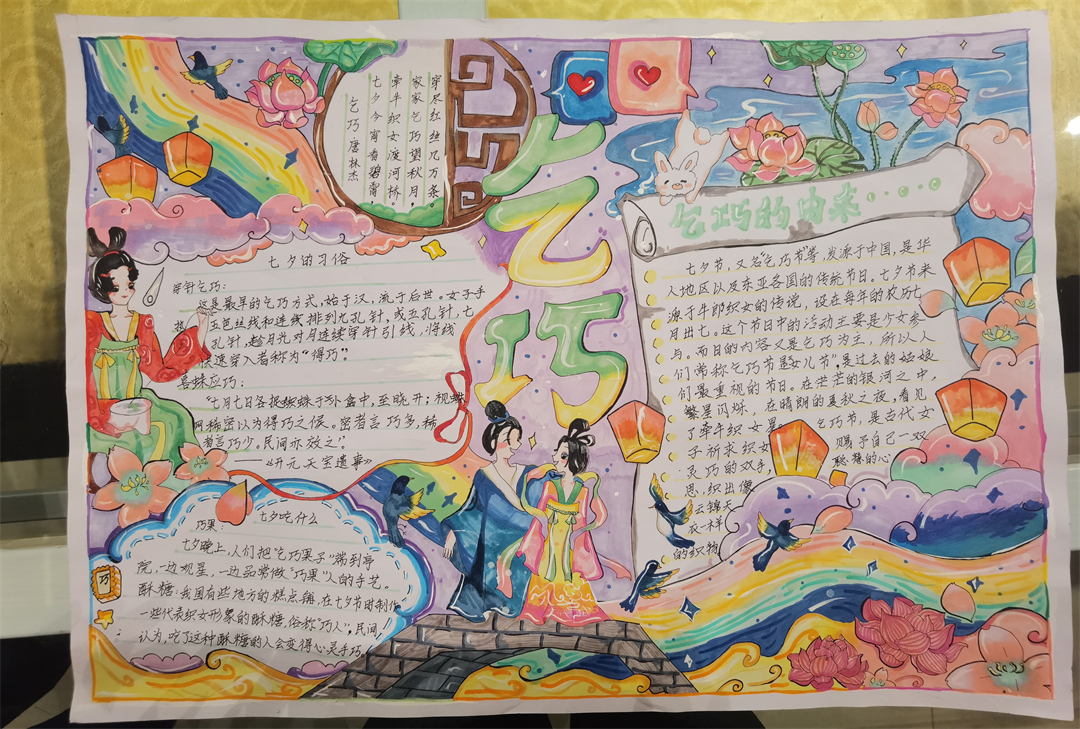 乞巧唐林杰
七夕今宵看碧霄,
牵牛织女渡河桥,
家家乞巧望秋月,
穿尽红丝几万条.
乞巧
七夕的习俗
穿针乞巧:
这是最早的乞巧方式,始于汉,流于后世。女子手
五色丝线和连续排列九孔针,或五孔针,七
孔针,趁月光对月连续穿针引线,将线
快速穿入者称为“得巧”
喜蛛应巧:
“七月七日各捉蜘蛛于小盒中,至晓开;视蛛
网稀密以为得巧之侯。密者言巧多,稀
者言巧少。民间亦效之”
——《开元天宝遗事》
七夕吃什么
巧果:
七夕晚上,人们把“乞巧果子”端到亭
院,一边观星,一边品尝做“巧果”人的手艺。
酥糖:我国有些地方的糕点铺,在七夕节时制作
一些代表织女形象的酥糖,俗称“巧人”,民间
认为,吃了这种酥糖的人会变得心灵手巧.
巧
乞巧的由来
七夕节,又名“乞巧节”等,发源于中国,是华
人地区以及东亚各国的传统节日。七夕节来
源于牛郎织女的传说,设在每年的农历七
月出七。这个节日中的活动主要是少女参
与。而目的内容又是乞巧为主,所以人
们常称乞巧节是女儿节”,是过去的姑娘
们最重视的节日。在茫茫的银河之中,
繁星闪烁,在晴朗的夏秋之夜,看见
了牵牛织女星。乞巧节,是古代女
子祈求织女赐予自己一双
灵巧的双手,聪慧的心
思,织出像
云锦天
衣一样
的织物